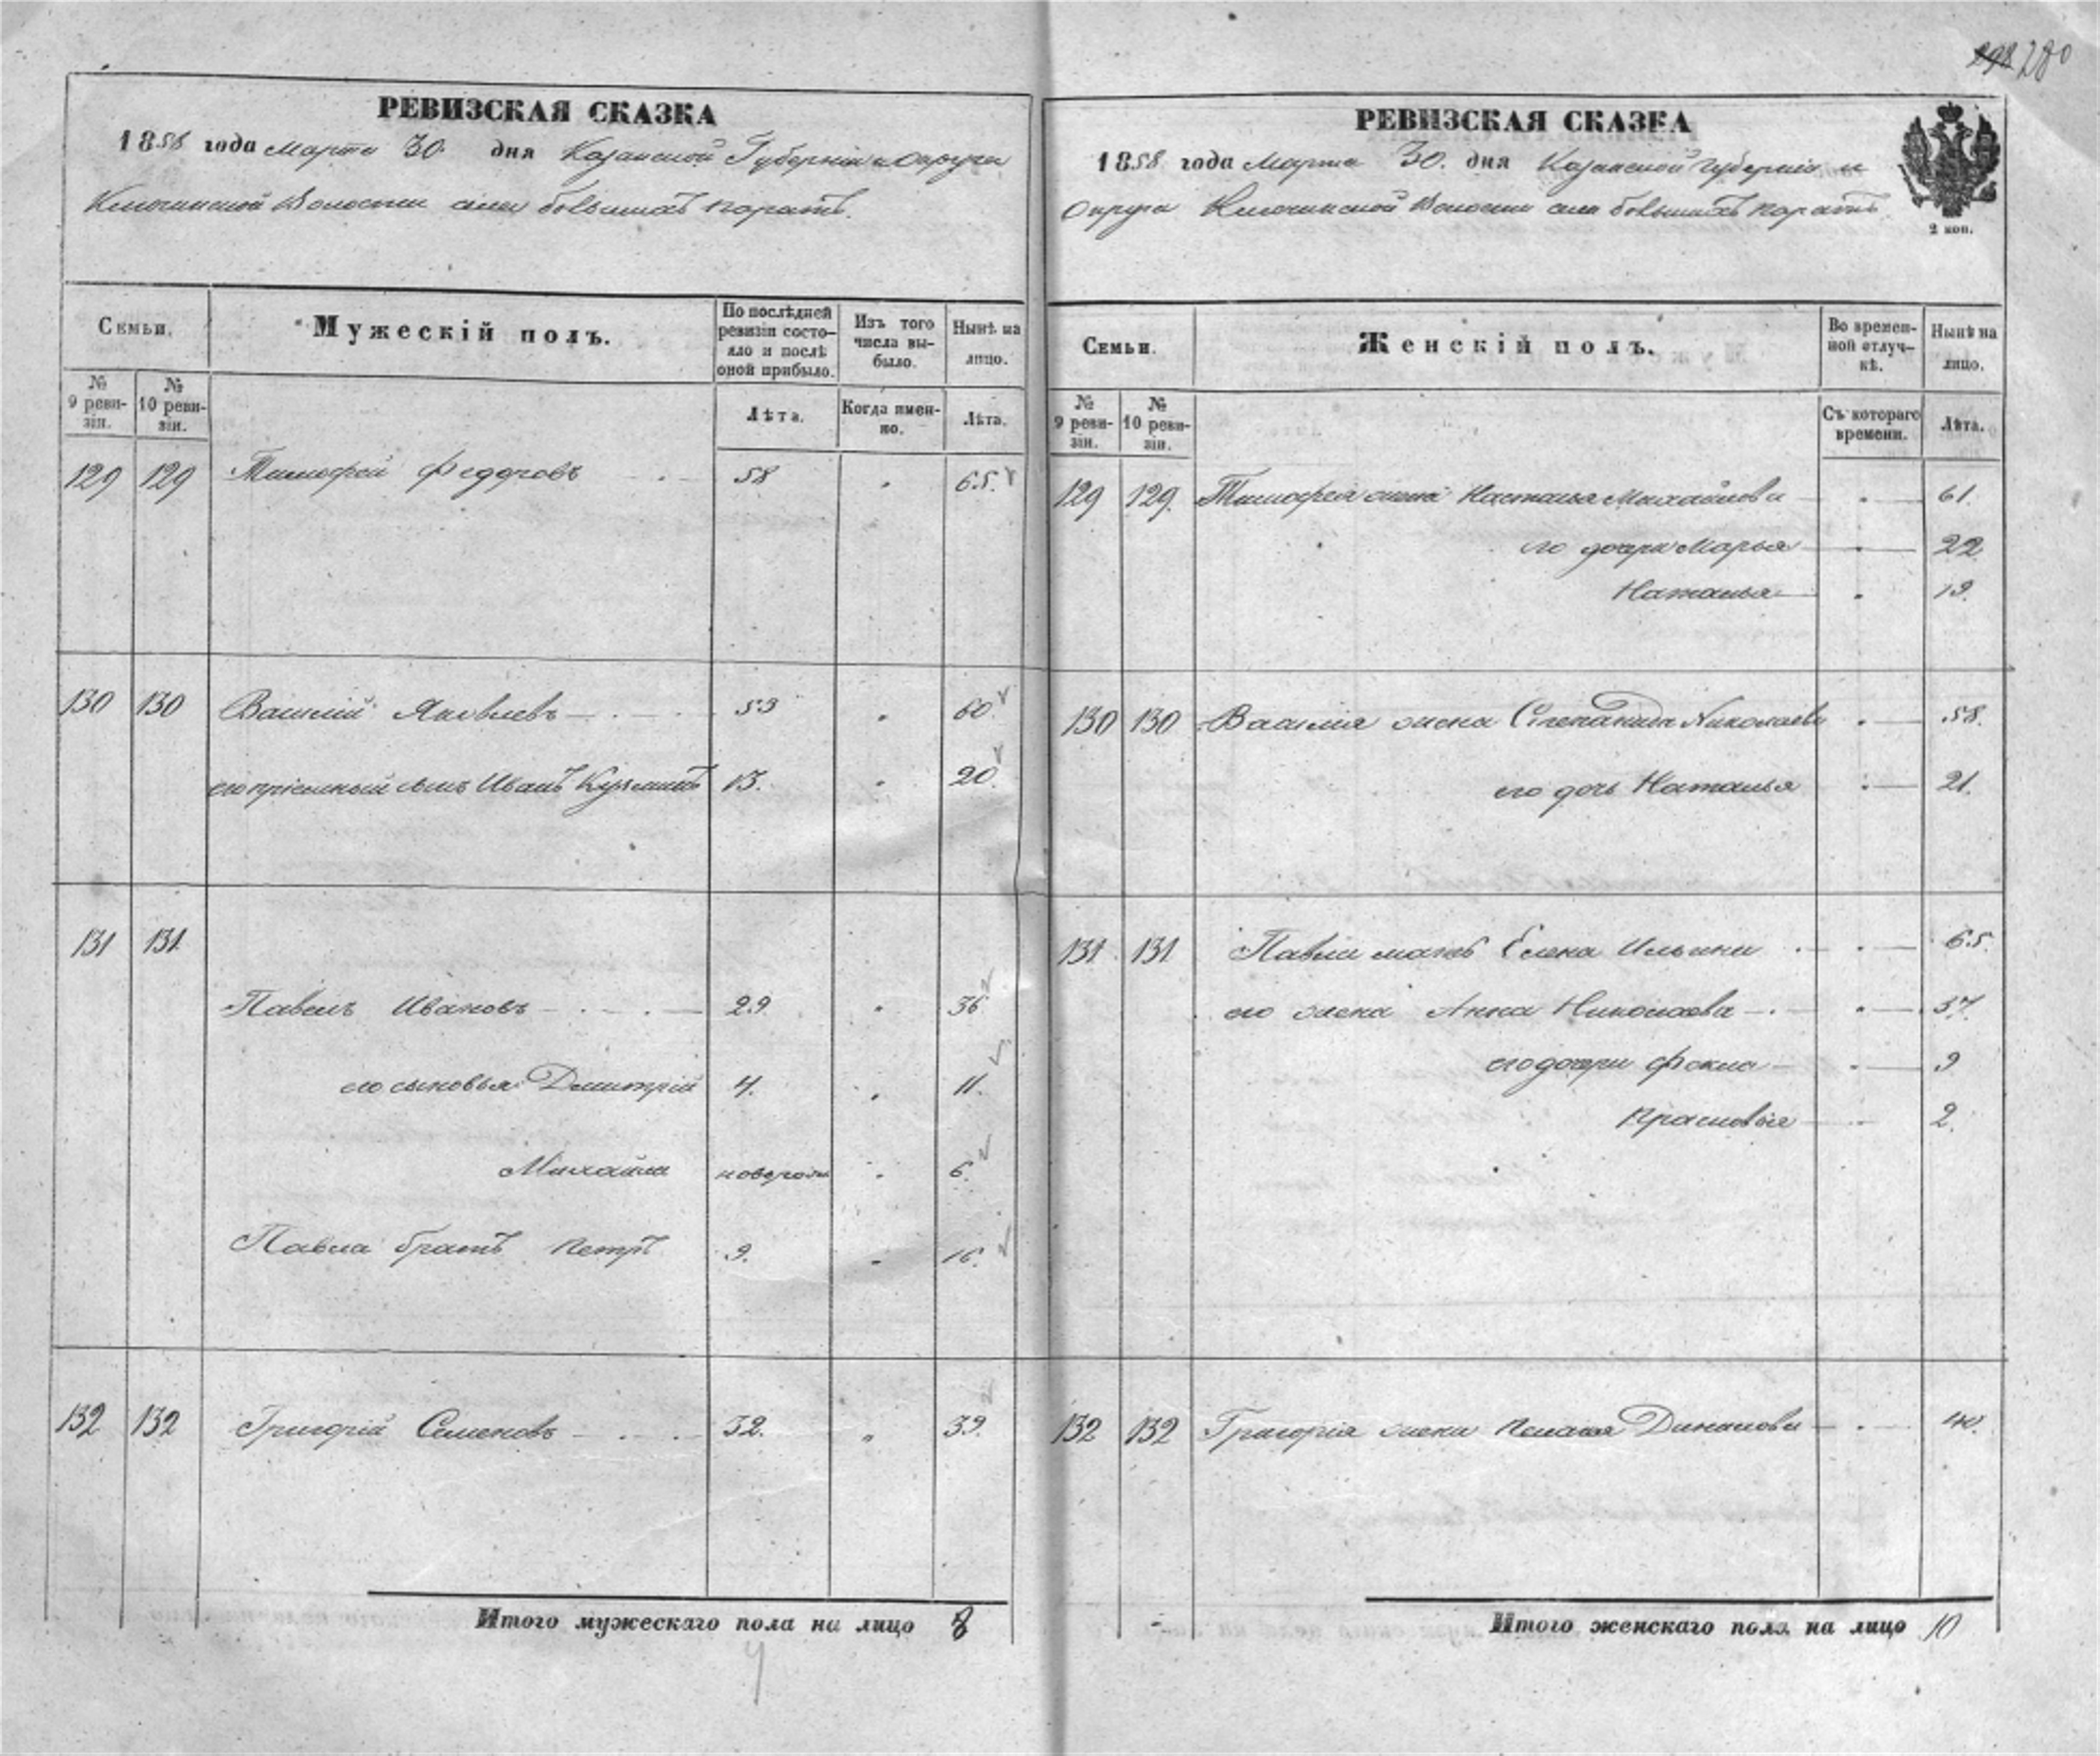 280
РЕВИЗСКАЯ СКАЗКА
1858 года Марта 30. дня Казанской Губерніи и Округи
Ключинской Волости села большихъ
Семьи.
Мужескій полъ.
По послѣдней ревизіи состояло и послѣ оной прибыло.
Изъ того числа выбыло.
Нынѣ на лицо.
№ 9 ревизіи.
№ 10 ревизіи.
Лѣта.
Когда именно.
Лѣта.
129 129 Тимофей Федоровъ 58 65.
130 130 Василій Яковлевъ 53 60.
его пріемный сынъ Иванъ Кузминъ 13. 20.
131 131
Павелъ Ивановъ 29 36
его сыновья Дмитрій 4. 11.
Михайла новорож 6.
Павла братъ Петръ 9. 16.
132 132 Григорій Семеновъ 32. 39.
Итого мужескаго пола на лицо 8
РЕВИЗСКАЯ СКАЗКА
1858 года Марта 30. дня Казанской Губерніи и
Округи Ключинской Волости села большихъ
2 коп.
Семьи.
Женскій полъ.
Во временной отлучкѣ.
Нынѣ на лицо.
№ 9 ревизіи.
№ 10 ревизіи.
Съ котораго времени.
Лѣта.
129 129. Тимофея жена Настасья Михайлова 61.
его дочери Марья 22
Наталья 19.
130 130 Василія жена Степанида Николаева 58.
его дочь Наталья 21.
131 131 Павла мать Елена Ильина 65.
его жена Анна Николаева 37.
его дочери Фекла 9
Прасковья 2.
132 132 Григорія жена Пелагея 40.
Итого женскаго пола на лицо 10